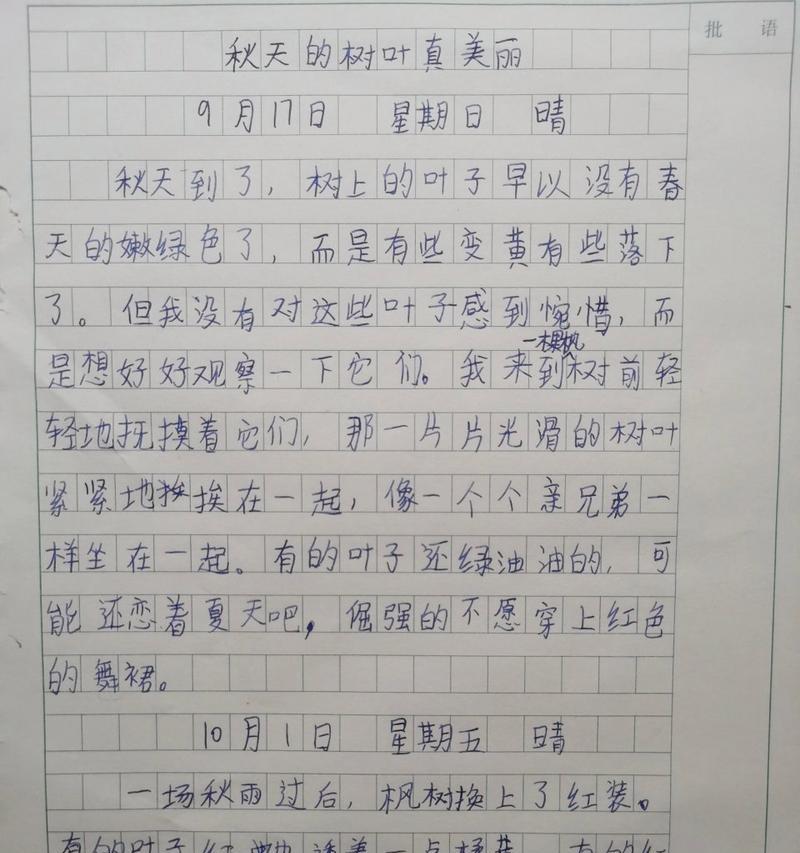 批 语
秋天的树叶真美丽
9月17日 星期日 晴
秋天到了，树上的叶子早以没有春
天的嫩绿色了，而是有些变黄有些落下
了。但我没有对这些叶子感到惋惜，而
一棵枫
是想好好观察一下它们。我来到树前轻
轻地抚摸着它们，那一片片光滑的树叶
紧紧地挨挨在一起，像一个个亲兄弟一
样坐在一起。有的叶子还绿油油的，可
能还恋着夏天吧，倔强的不愿穿上红色
的舞裙。
10月1日 星期五 晴
一场秋雨过后，枫树换上了红装。
有的叶子红